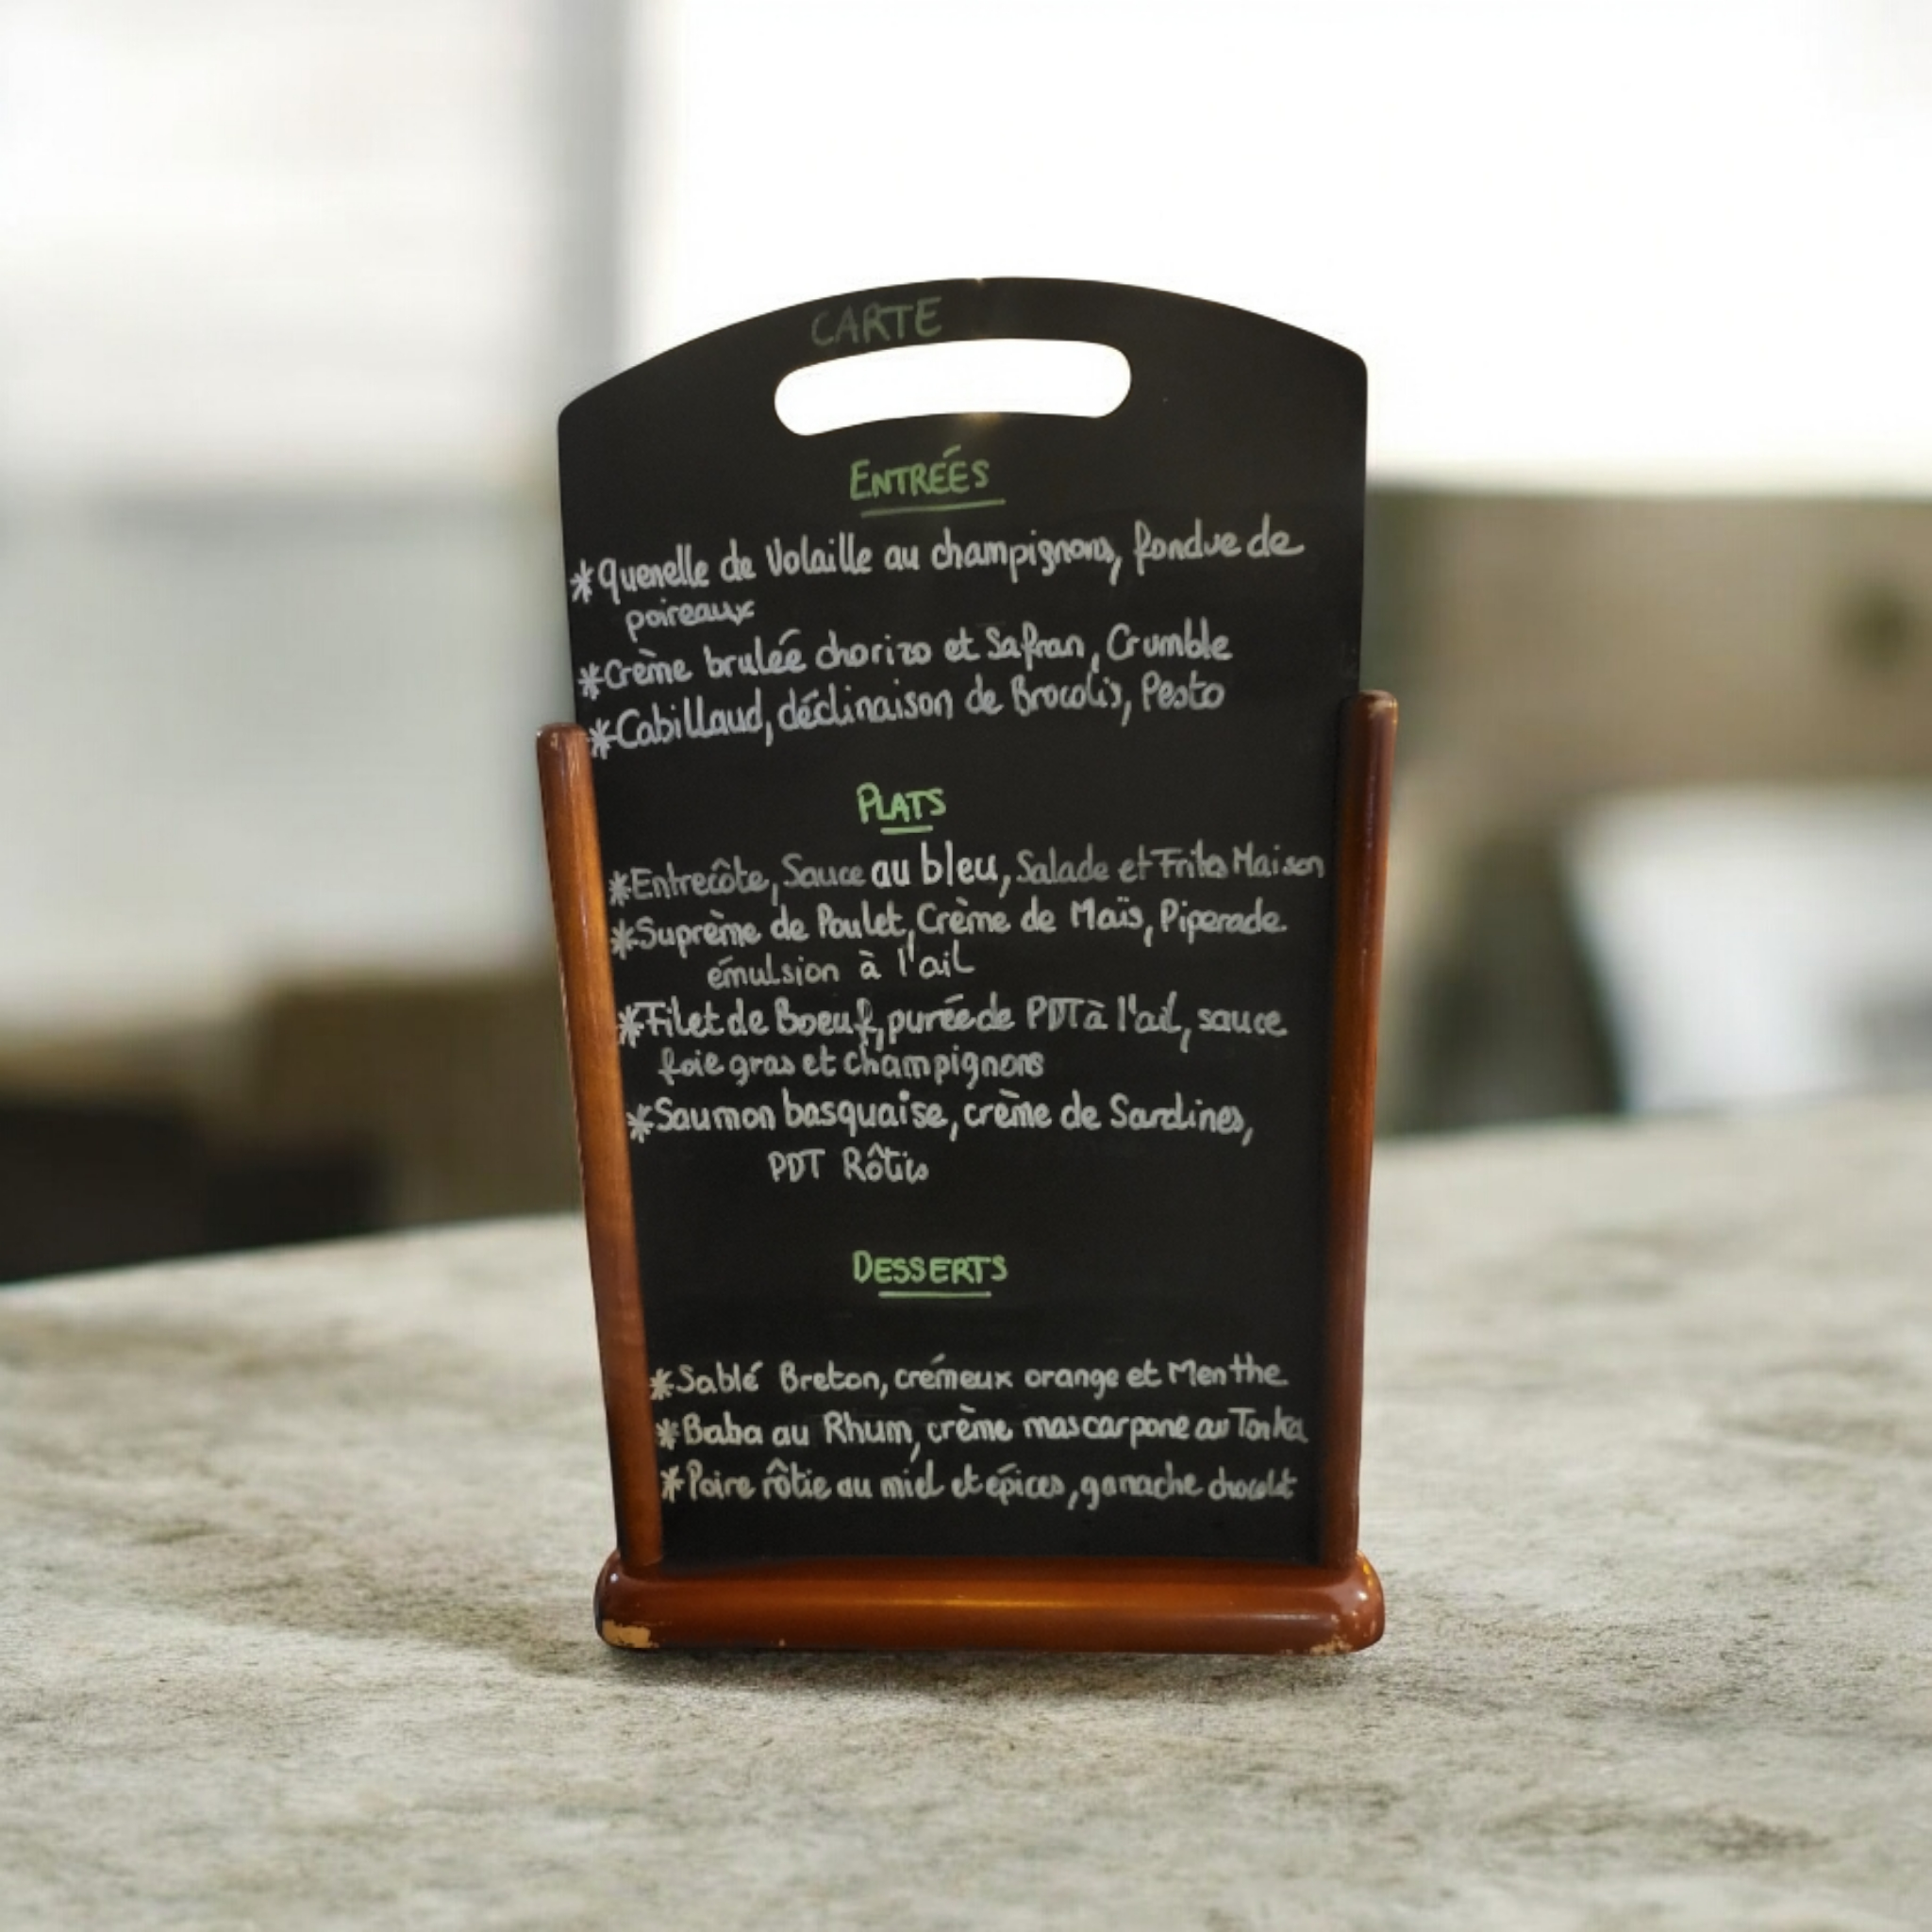 CARTE
ENTRÉES
*Quenelle de Volaille au champignons, fondue de
poireaux
*Crème brulée chorizo et Safran, Crumble
*Cabillaud, déclinaison de Brocolis, Pesto
PLATS
*Entrecôte, Sauce au bleu, Salade et Frites Maison
*Suprème de Poulet, Crème de Maïs, Piperade.
émulsion à l'ail
*Filet de Boeuf, purée de PDT à l'ail, sauce
foie gras et champignons
*Saumon basquaise, crème de Sardines,
PDT Rôtis
DESSERTS
*Sablé Breton, crémeux orange et Menthe
*Baba au Rhum, crème mascarpone au Tonka
*Poire rôtie au miel et épices, ganache chocolat